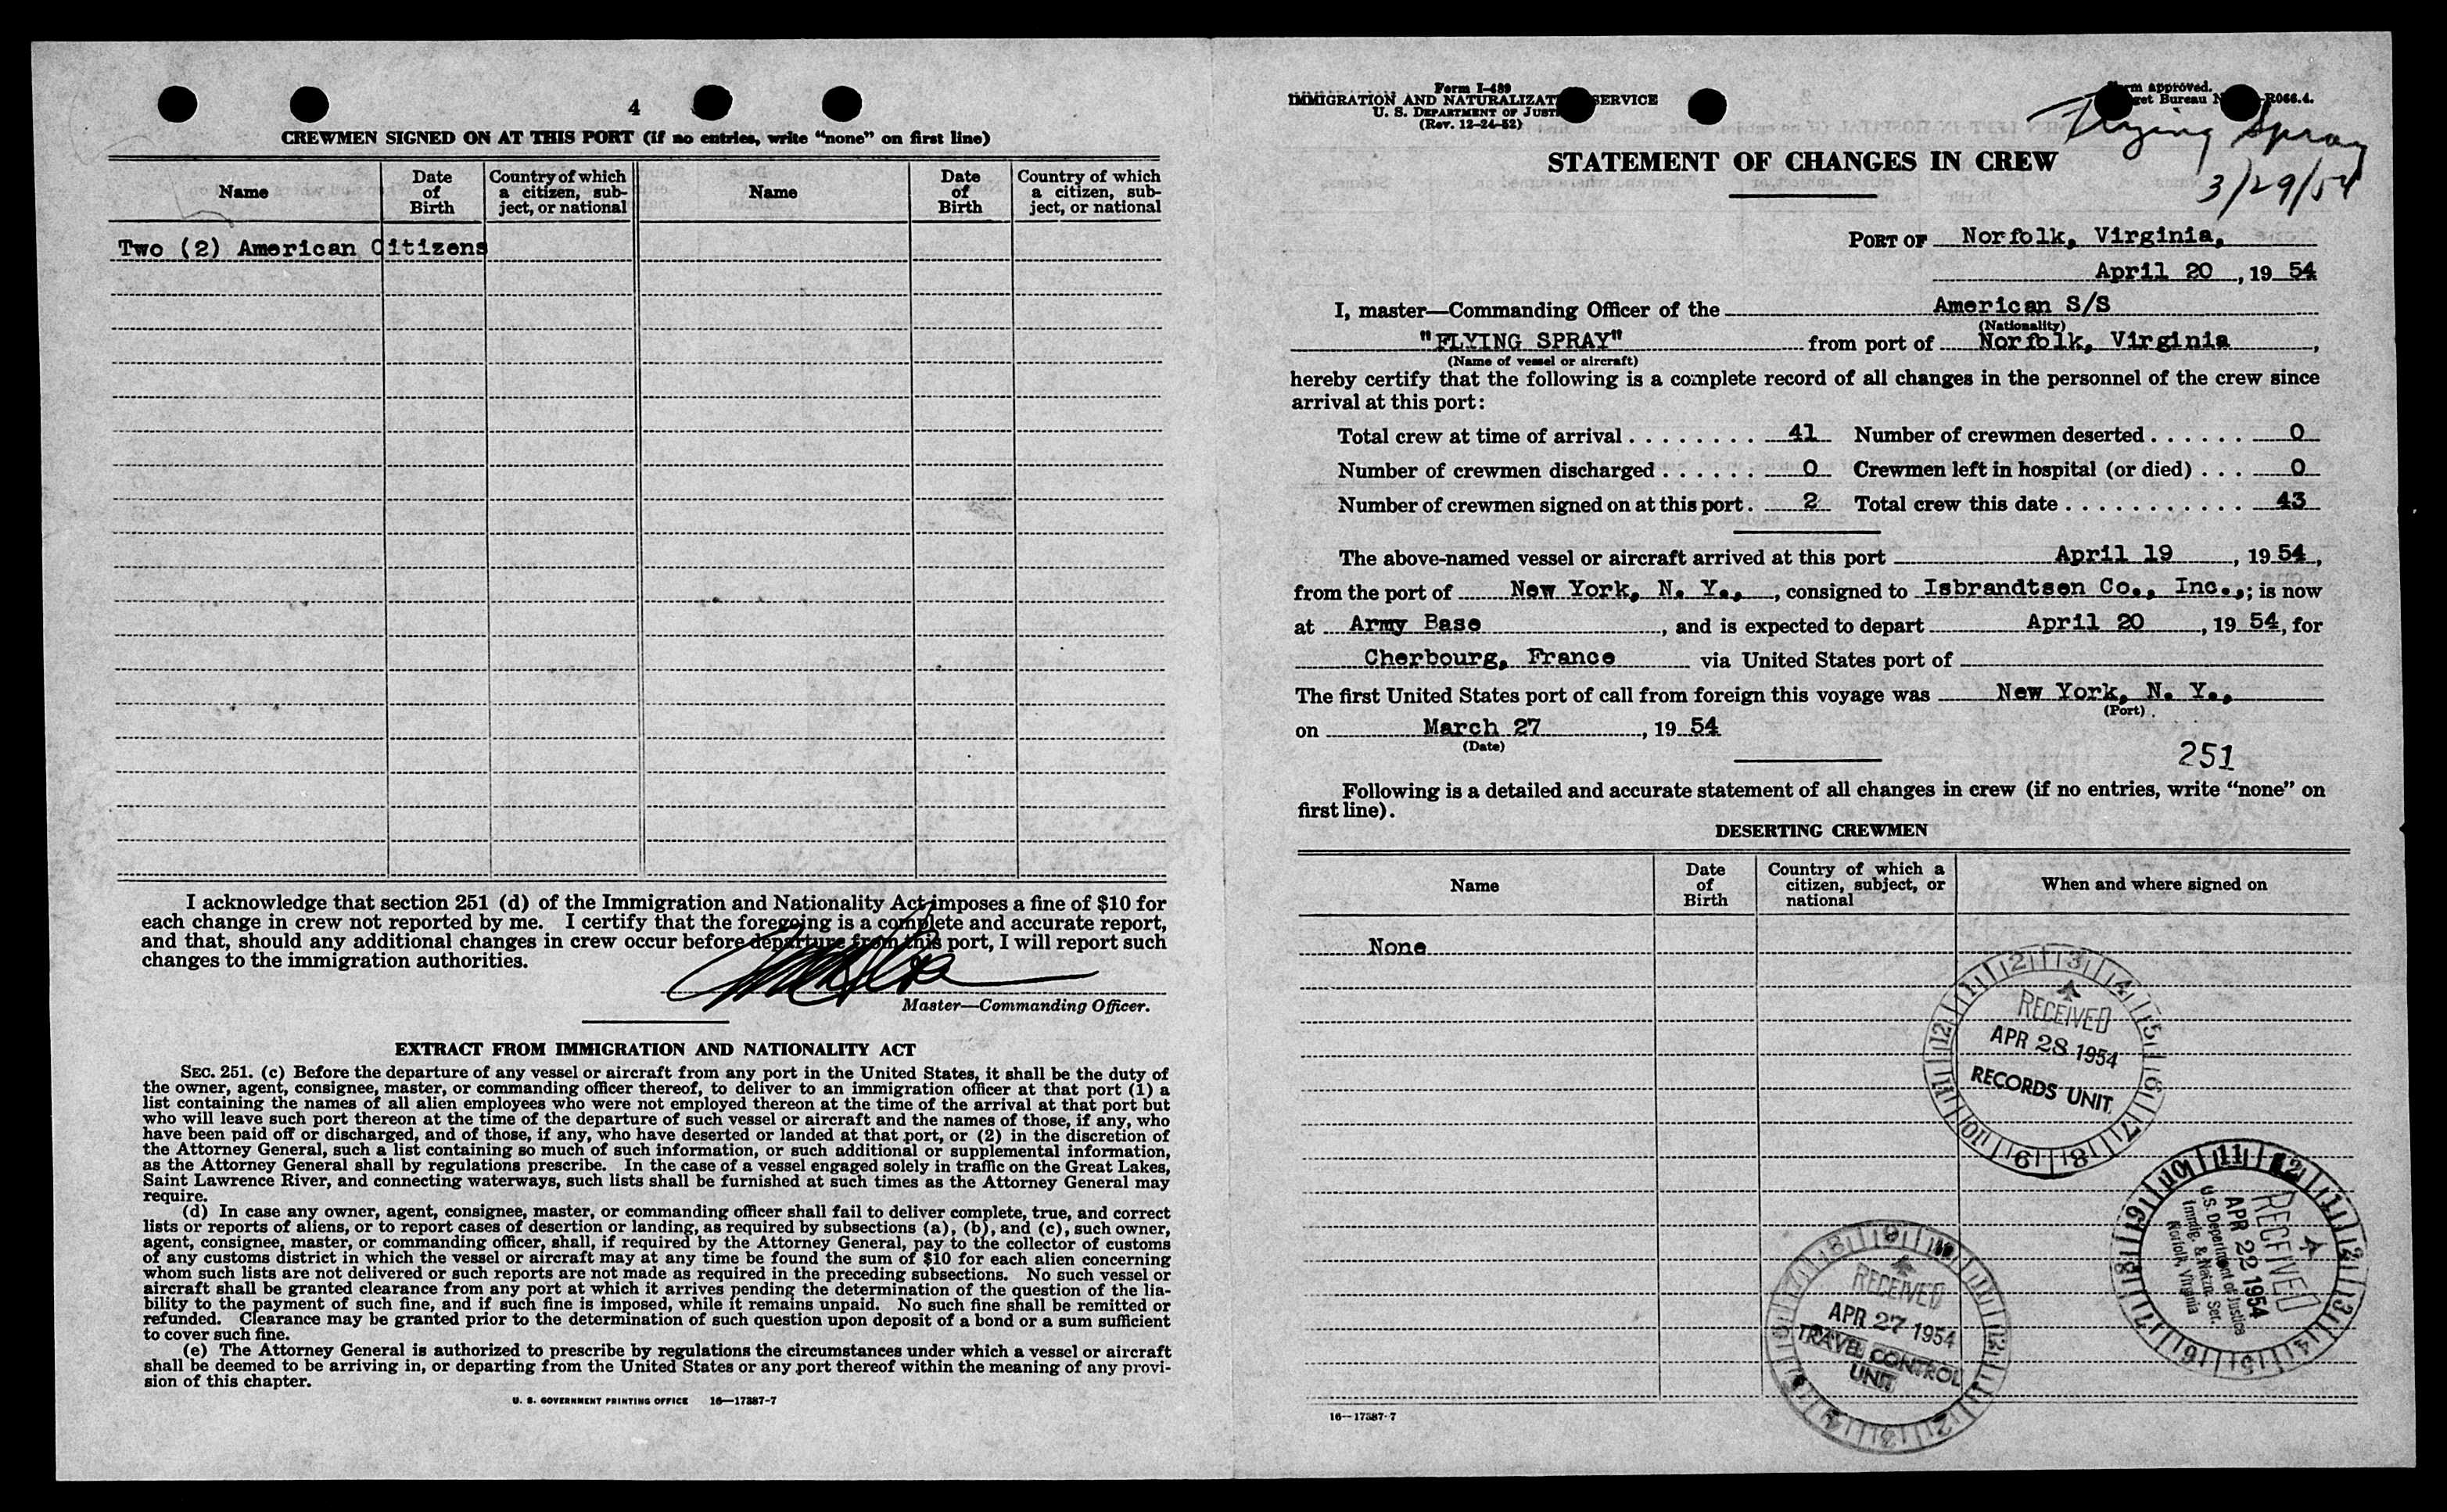 4
CREWMEN SIGNED ON AT THIS PORT (if no entries, write “none” on first line)
Name
Date of Birth
Country of which a citizen, subject, or national
Name
Date of Birth
Country of which a citizen, subject, or national
Two (2) American Citizens
I acknowledge that section 251 (d) of the Immigration and Nationality Act imposes a fine of $10 for
each change in crew not reported by me. I certify that the foregoing is a complete and accurate report,
and that, should any additional changes in crew occur before departure from this port, I will report such
changes to the immigration authorities.
Master—Commanding Officer.
EXTRACT FROM IMMIGRATION AND NATIONALITY ACT
SEC. 251. (c) Before the departure of any vessel or aircraft from any port in the United States, it shall be the duty of
the owner, agent, consignee, master, or commanding officer thereof, to deliver to an immigration officer at that port (1) a
list containing the names of all alien employees who were not employed thereon at the time of the arrival at that port but
who will leave such port thereon at the time of the departure of such vessel or aircraft and the names of those, if any, who
have been paid off or discharged, and of those, if any, who have deserted or landed at that port, or (2) in the discretion of
the Attorney General, such a list containing so much of such information, or such additional or supplemental information,
as the Attorney General shall by regulations prescribe. In the case of a vessel engaged solely in traffic on the Great Lakes,
Saint Lawrence River, and connecting waterways, such lists shall be furnished at such times as the Attorney General may
require.
(d) In case any owner, agent, consignee, master, or commanding officer shall fail to deliver complete, true, and correct
lists or reports of aliens, or to report cases of desertion or landing, as required by subsections (a), (b), and (c), such owner,
agent, consignee, master, or commanding officer, shall, if required by the Attorney General, pay to the collector of customs
of any customs district in which the vessel or aircraft may at any time be found the sum of $10 for each alien concerning
whom such lists are not delivered or such reports are not made as required in the preceding subsections. No such vessel or
aircraft shall be granted clearance from any port at which it arrives pending the determination of the question of the lia-
bility to the payment of such fine, and if such fine is imposed, while it remains unpaid. No such fine shall be remitted or
refunded. Clearance may be granted prior to the determination of such question upon deposit of a bond or a sum sufficient
to cover such fine.
(e) The Attorney General is authorized to prescribe by regulations the circumstances under which a vessel or aircraft
shall be deemed to be arriving in, or departing from the United States or any port thereof within the meaning of any provi-
sion of this chapter.
U. S. GOVERNMENT PRINTING OFFICE 16—17387-7
Form I-489
IMMIGRATION AND NATURALIZAT SERVICE
U. S. DEPARTMENT OF JUST
(Rev. 12-24-52)
m approved.
get Bureau N R066.4.
Flying Spray
3/29/54
STATEMENT OF CHANGES IN CREW
PORT OF Norfolk, Virginia,
April 20, 19 54
I, master—Commanding Officer of the American S/S
(Nationality)
"FLYING SPRAY" from port of Norfolk, Virginia,
(Name of vessel or aircraft)
hereby certify that the following is a complete record of all changes in the personnel of the crew since
arrival at this port:
Total crew at time of arrival . . . . . . . . 41 Number of crewmen deserted . . . . . . 0
Number of crewmen discharged . . . . . . 0 Crewmen left in hospital (or died) . . . 0
Number of crewmen signed on at this port . 2 Total crew this date . . . . . . . . . . . 43
The above-named vessel or aircraft arrived at this port April 19, 19 54,
from the port of New York, N. Y., , consigned to Isbrandtsen Co., Inc.,; is now
at Army Base , and is expected to depart April 20, 19 54, for
Cherbourg, France via United States port of
The first United States port of call from foreign this voyage was New York, N. Y.,
(Port)
on March 27, 19 54
(Date)
251
Following is a detailed and accurate statement of all changes in crew (if no entries, write “none” on
first line).
DESERTING CREWMEN
Name
Date of Birth
Country of which a citizen, subject, or national
When and where signed on
None
RECEIVED
APR 28 1954
RECORDS UNIT
RECEIVED
APR 22 1954
U.S. Department of Justice
Immig. & Natzn. Ser.
Norfolk, Virginia
RECEIVED
APR 27 1954
TRAVEL CONTROL
UNIT
16—17387-7